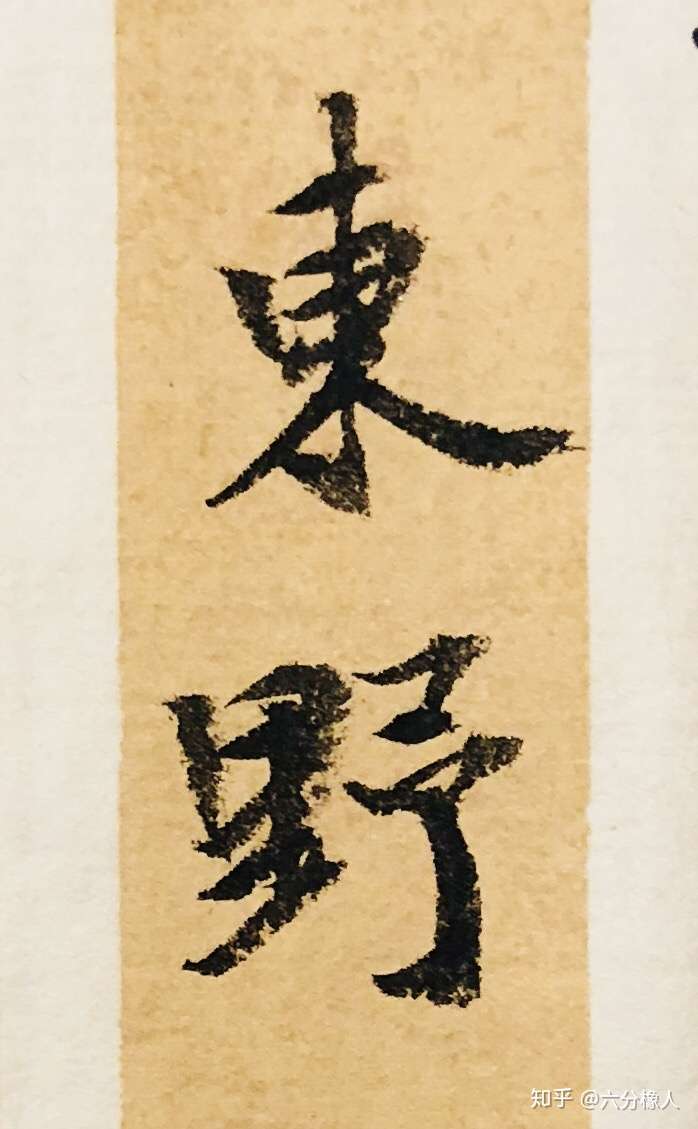 東野
知乎 @六分橡人